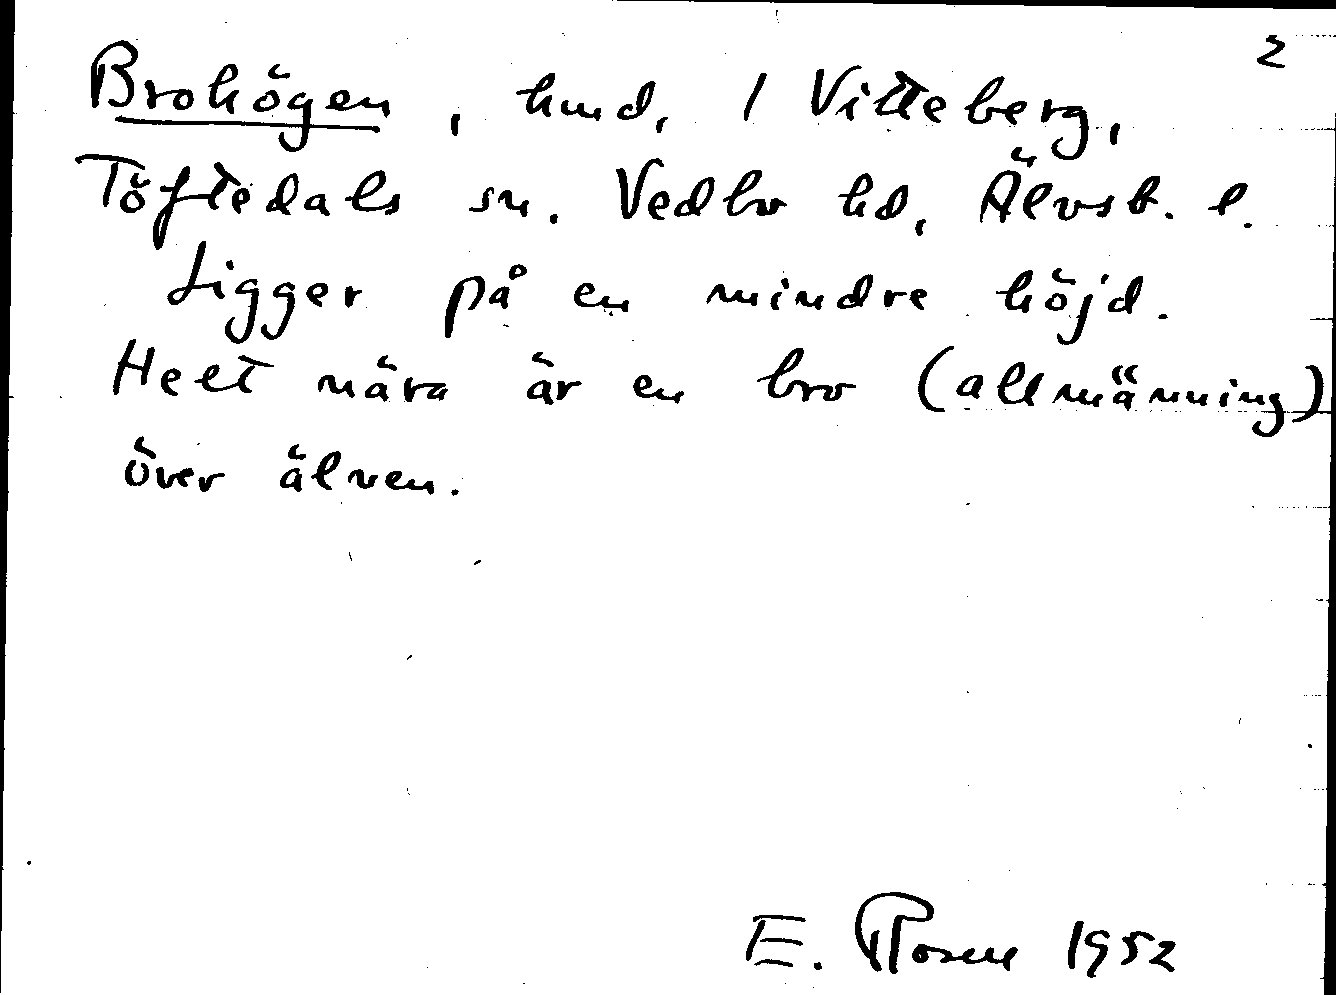 2
Brohögen, hmd, / Vitteberg,
Töftedals sn. Vedbo hd, Älvsb. l.
Ligger på en mindre höjd.
Helt nära är en bro (allmänning)
över älven.
E. Rosen 1952